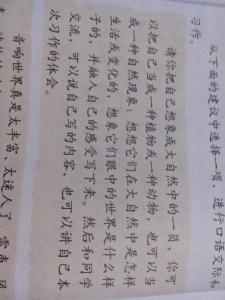 从下面的建议中选择一项，进行口语交际和
习作。
请你把自己想象成大自然中的一员，你可
以把自己当成一种植物或一种动物，也可以当
成一种自然现象，想想它们在大自然中是怎样
生活或变化的，想象它们眼中的世界是什么样
子的，并融入自己的感受写下来，然后和同学
交流，可以说自己写的内容，也可以讲自己本
次习作的体会。
音响世界真是太丰富、太迷人了